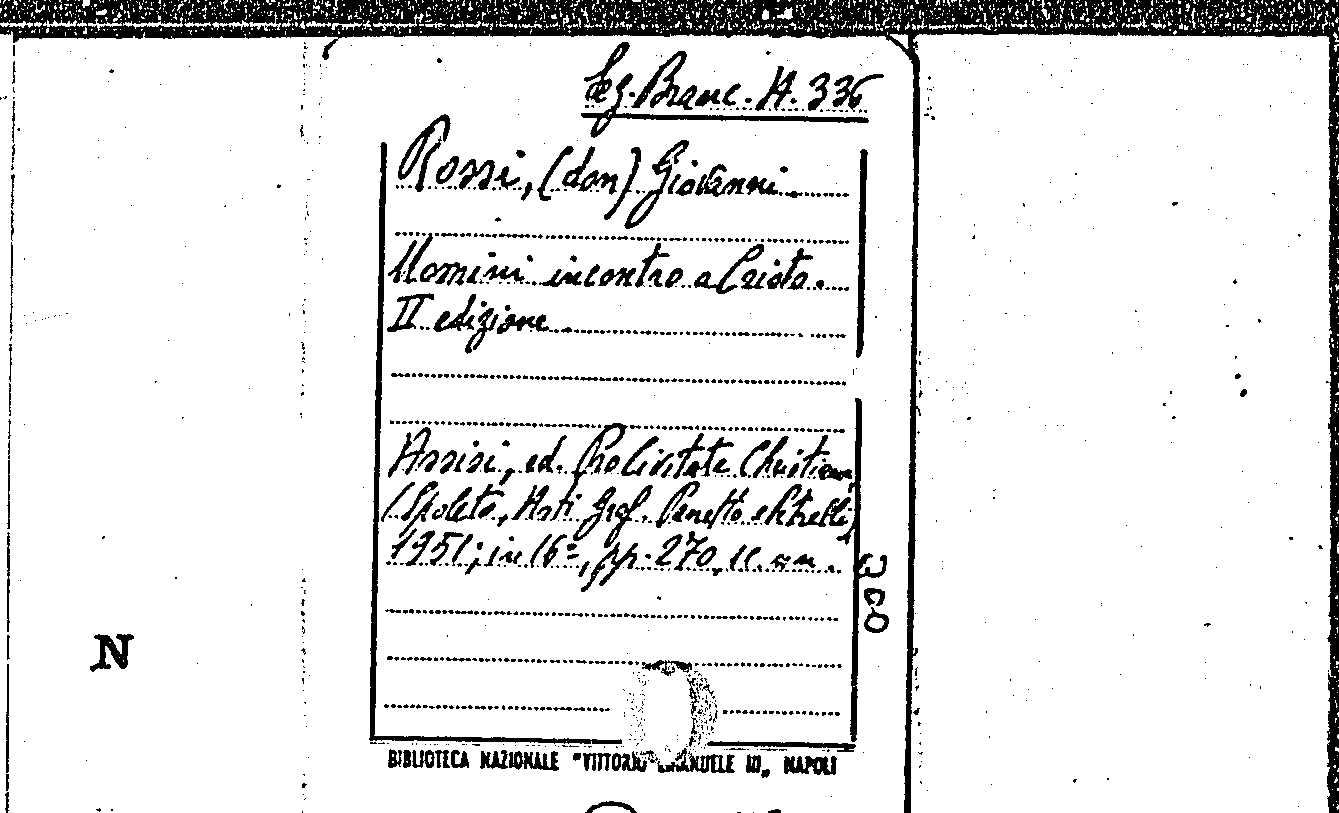 Leg. Branc. A. 336
Rossi, (don) Giovanni.
Uomini incontro a Cristo.
II edizione.
Assisi, ed. Pro Civitate Christiana,
(Spoleto, Arti Graf. Panetto e Petrelli)
1951; in 16º, pp. 270,
300
N
BIBLIOTECA NAZIONALE "VITTORIO EMANUELE III„ NAPOLI